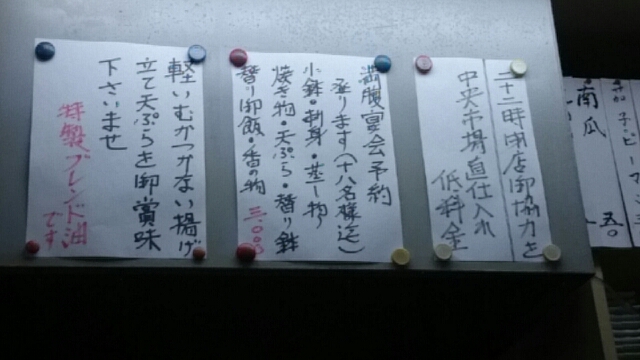 二十二時閉店御協力を
中央市場直仕入れ
低料金
満腹宴会予約
承ります(十八名様迄)
小鉢・刺身・蒸し物
焼き物・天ぷら・替り鉢
替り御飯・香の物 三.〇〇〇
軽いむかつかない揚げ
立て天ぷらを御賞味
下さいませ
特製ブレンド油
です
南瓜